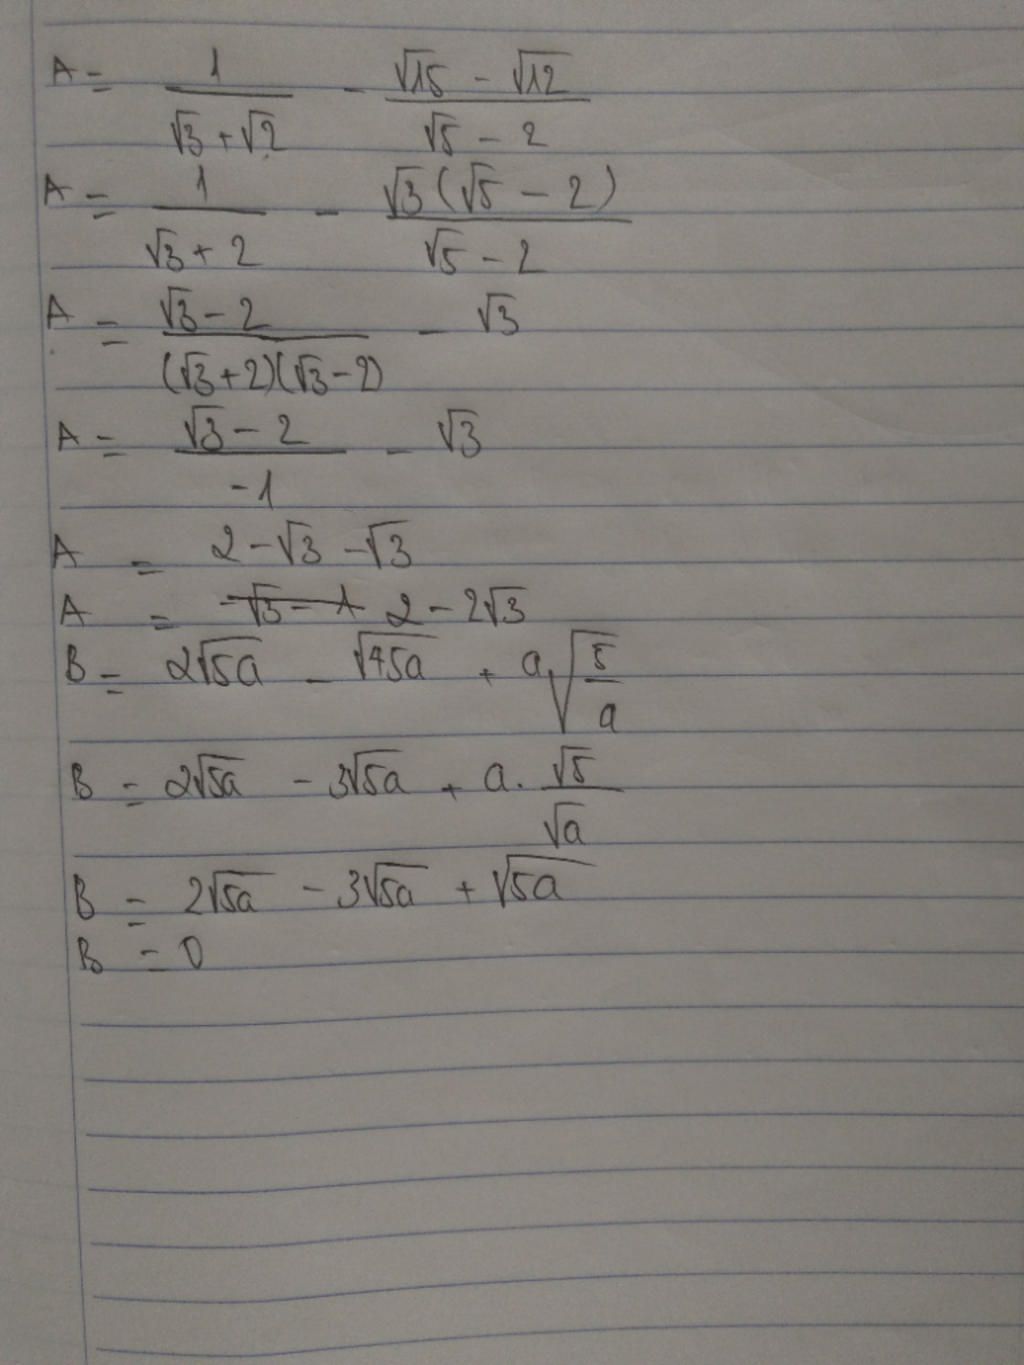 A = 1/(√3 + √2) - (√15 - √12)/(√5 - 2)
A = 1/(√3 + 2) - √3(√5 - 2)/(√5 - 2)
A = (√3 - 2)/((√3+2)(√3-2)) - √3
A = (√3 - 2)/(-1) - √3
A = 2 - √3 - √3
A = 2 - 2√3
B = 2√5a - √45a + a√(5/a)
B = 2√5a - 3√5a + a. √5/√a
B = 2√5a - 3√5a + √5a
B = 0